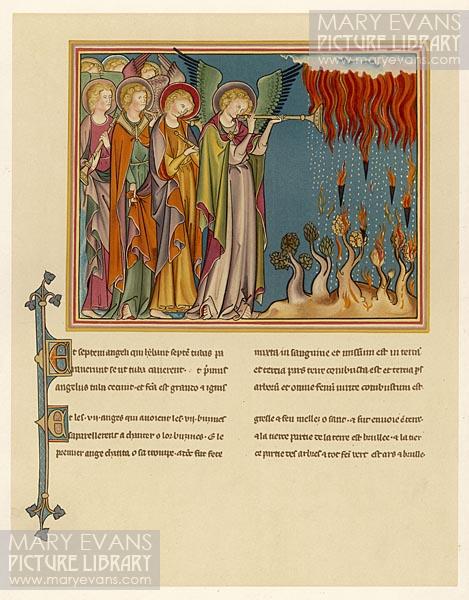 MARY EVANS
PICTURE LIBRARY
www.maryevans.com
Et septem angeli qui hẽbant septẽ tubas pa
rauerunt se ut tuba canerent · et p̃mus
angelus tuba cecinit · et fc̃a est grando et ignis
mixta in sanguine et missum est in terrã
et tercia pars terre combusta est · et tercia ps̃
arborũ et omne fenũ uire combustum est ·
Et les · vii · anges qui auoient les vii · buisines
saparellerent a chanter o lor buzines · & le
premier ange chanta · o sa troupe · fute fete
gresle & feu mellez o sanc · & fut enuoie ẽ terre ·
& la tierce partie de la terre est brullee · & la tier
ce partie des arbres & tot fein vert est ars & brulle
MARY EVANS
PICTURE LIBRARY
www.maryevans.com